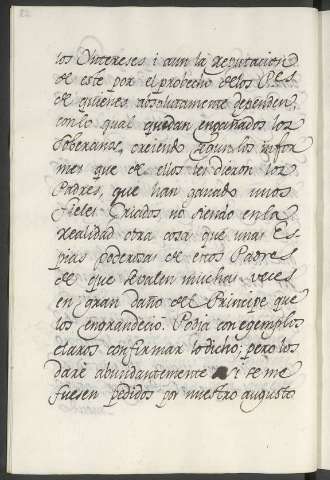 los Yntereses i aun la reputacion
de este por el probecho de los PP.es
de quienes absolutamente dependen,
con lo qual quedan engañados los
Soberanos, creiendo segun los infor
mes que de ellos les dieron los
Padres, que han ganado unos
fieles Criados no siendo en la
realidad otra cosa que unas Es-
pias poderosas de estos Padres
de que se valen muchas veces
en gran daño del Principe que
los engrandeció. Podia con egemplos
claros confirmar lo dicho; pero los
daré abundantemente si se me
fuesen pedidos por nuestro augusto